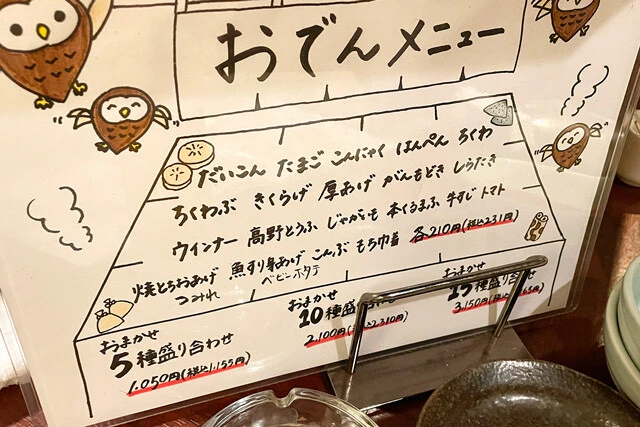 おでんメニュー
だいこん たまご こんにゃく はんぺん ちくわ
ちくわぶ きくらげ 厚あげ がんもどき しらたき
ウィンナー 高野とうふ じゃがいも 車くるまふ 牛すじ トマト
焼とちおあげ 魚すり身あげ こんぶ もち巾着 各210円(税込231円)
つみれ ベビーホタテ
おまかせ
5種盛り合わせ
1,050円(税込1,155円)
おまかせ
10種盛
2,100円(税込2,310円)
おまかせ
15種盛り合せ
3,150円(税込